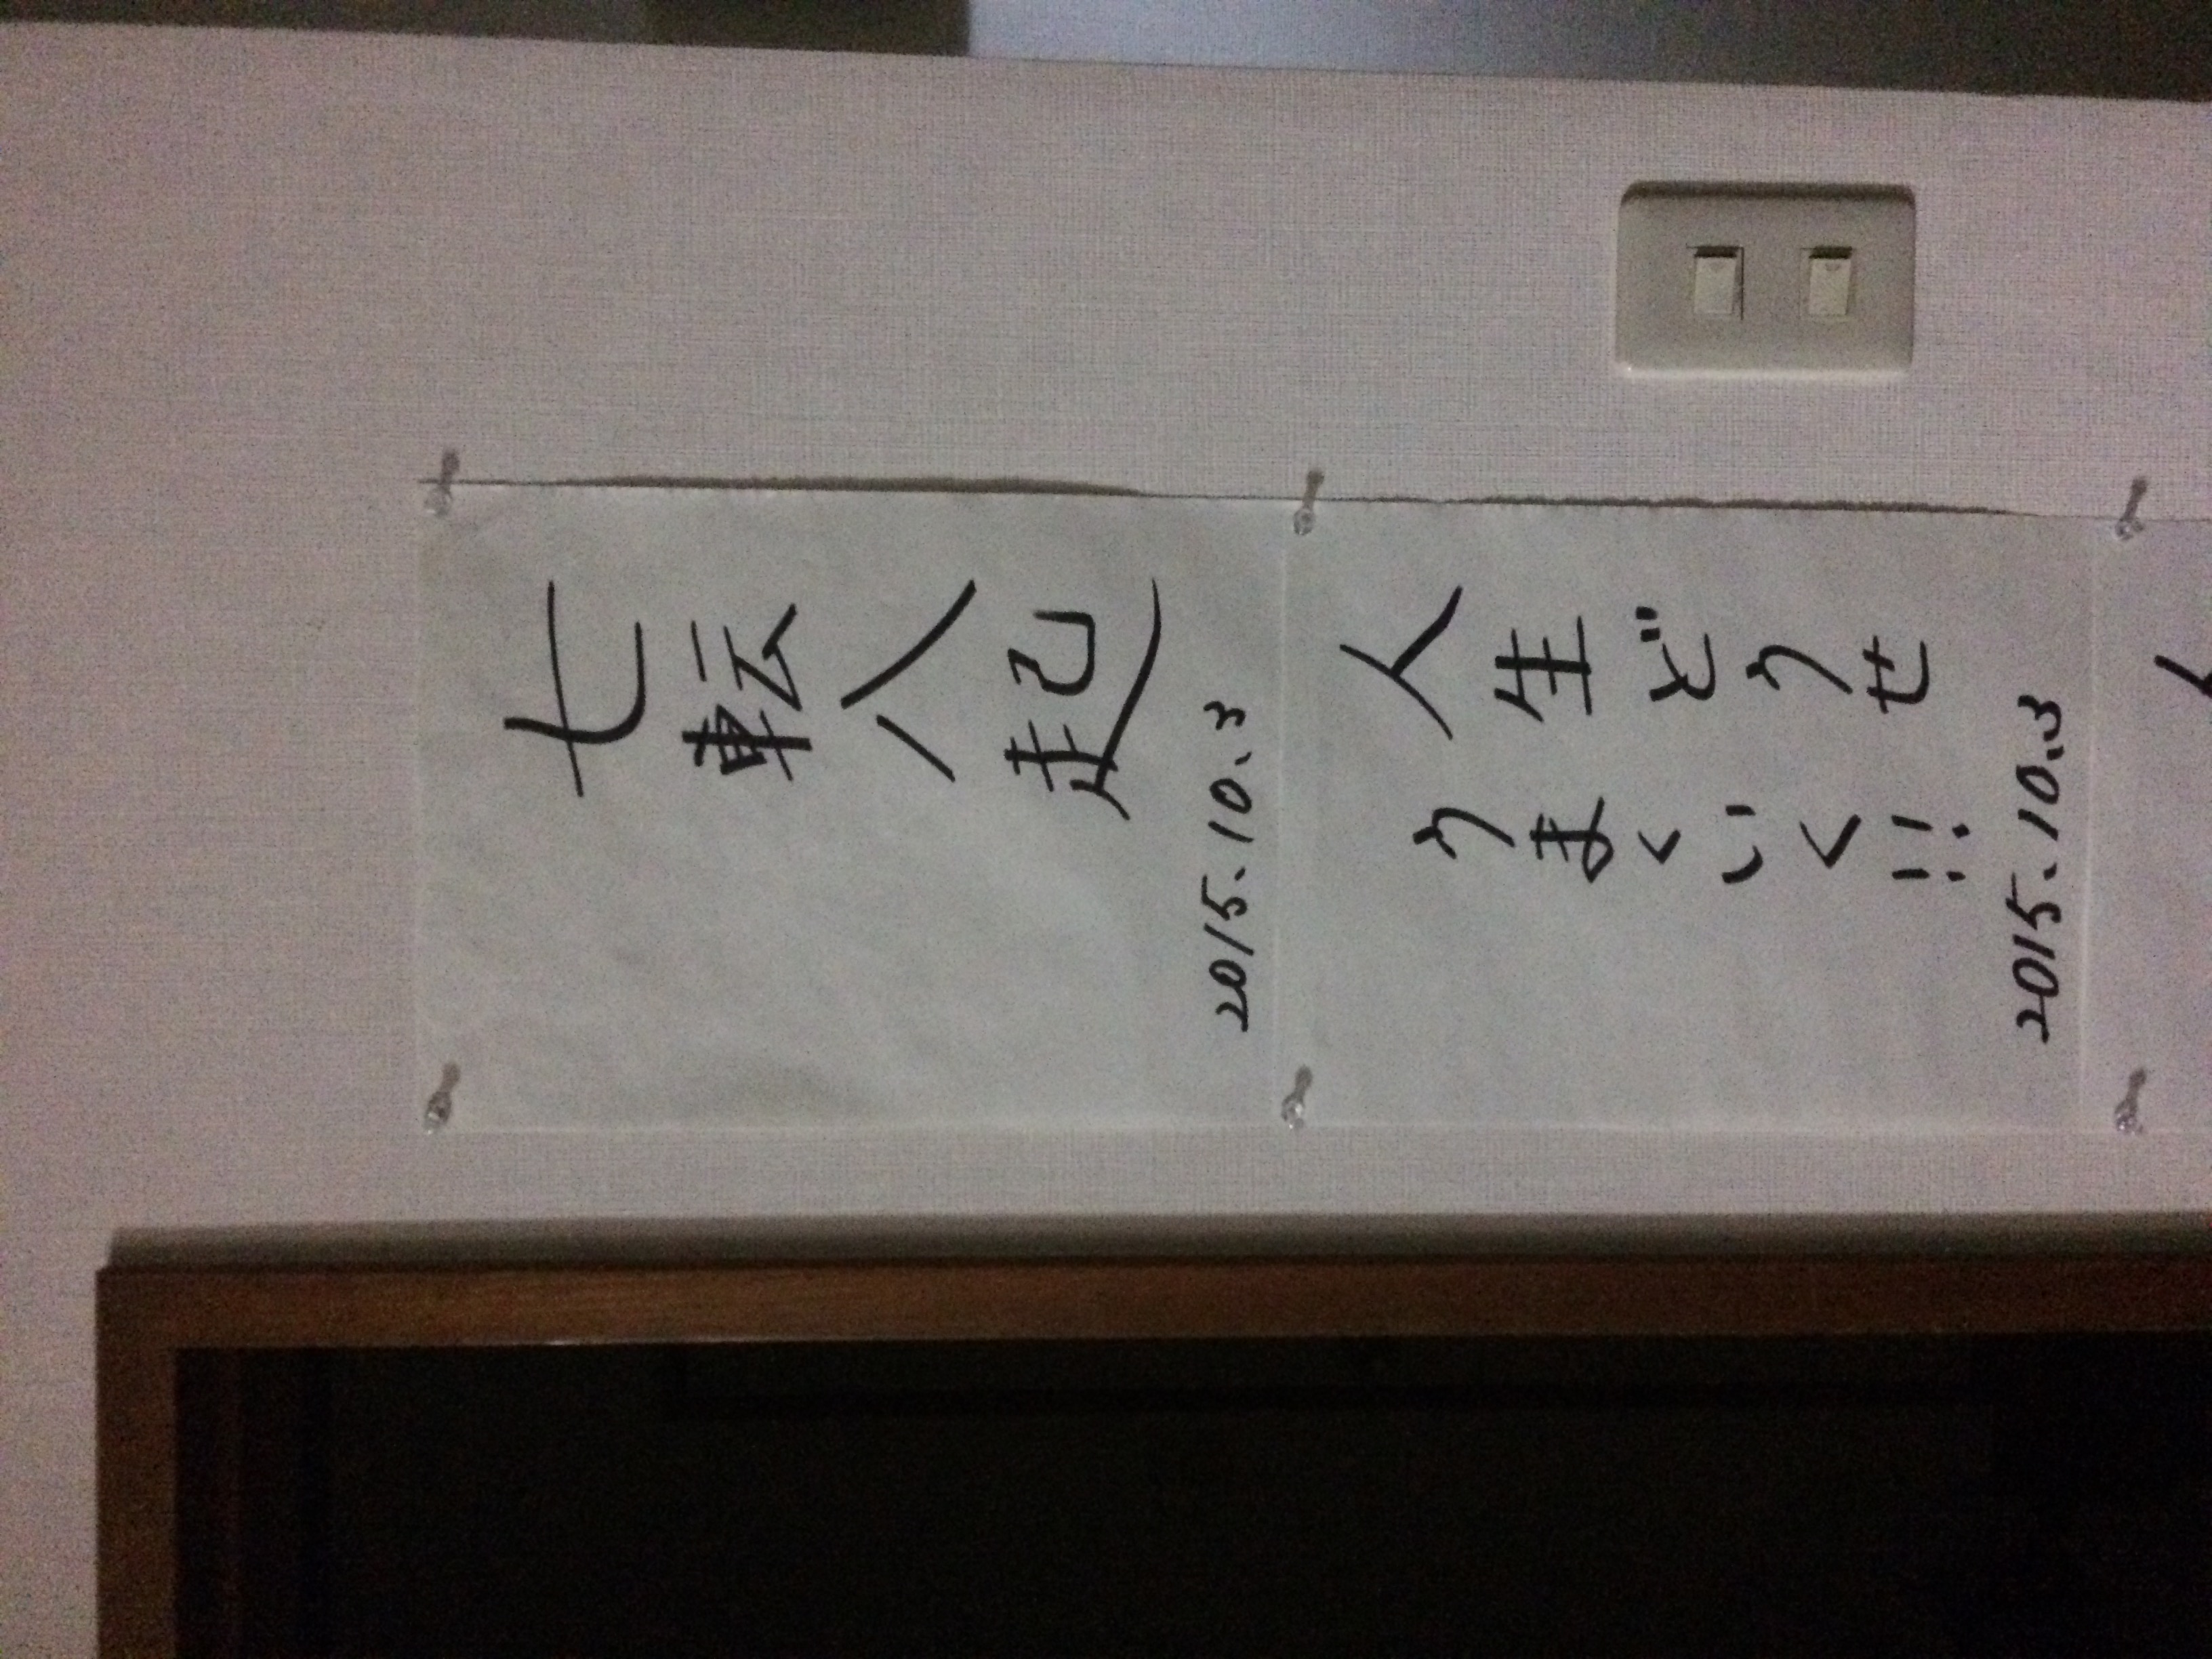 七転八起
2015.10.3
人生どうせ
うまくいく!!
2015.10.3